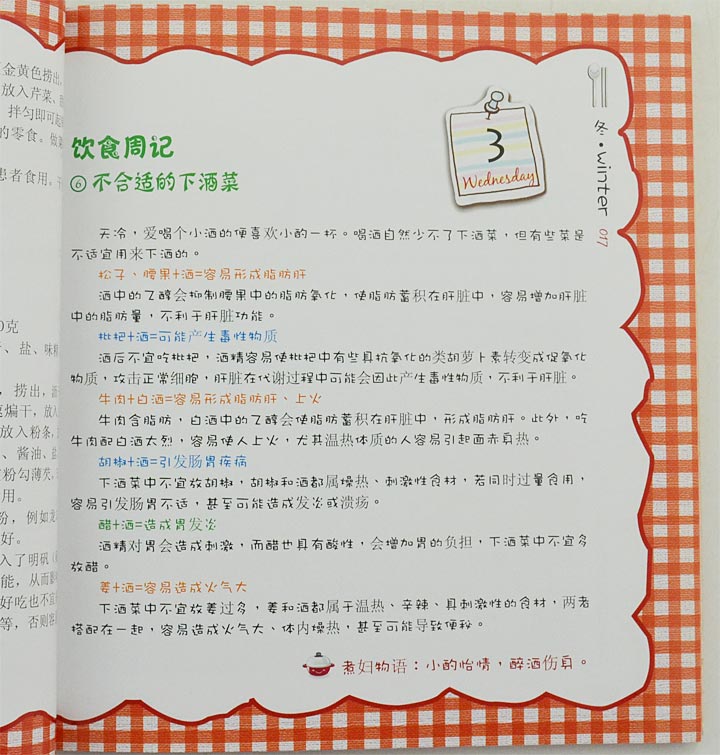 金黄色捞出,
放入芹菜、
拌匀即可起
的零食。做菜
患者食用。
0克
、盐、味精
，捞出，
煸干，放入
放入粉条，
、酱油、盐
粉勾薄芡，
用。
粉，例如龙
好。
入了明矾（
能，从而影
好吃也不宜
等，否则容
3
Wednesday
冬·winter
017
饮食周记
⑥不合适的下酒菜
天冷，爱喝个小酒的便喜欢小酌一杯。喝酒自然少不了下酒菜，但有些菜是
不适宜用来下酒的。
松子、腰果+酒=容易形成脂肪肝
酒中的乙醇会抑制腰果中的脂肪氧化，使脂肪蓄积在肝脏中，容易增加肝脏
中的脂肪量，不利于肝脏功能。
枇杷+酒=可能产生毒性物质
酒后不宜吃枇杷，酒精容易使枇杷中有些具抗氧化的类胡萝卜素转变成促氧化
物质，攻击正常细胞，肝脏在代谢过程中可能会因此产生毒性物质，不利于肝脏。
牛肉+白酒=容易形成脂肪肝、上火
牛肉含脂肪，白酒中的乙醇会使脂肪蓄积在肝脏中，形成脂肪肝。此外，吃
牛肉配白酒太烈，容易使人上火，尤其温热体质的人容易引起面赤身热。
胡椒+酒=引发肠胃疾病
下酒菜中不宜放胡椒，胡椒和酒都属燥热、刺激性食材，若同时过量食用，
容易引发肠胃不适，甚至可能造成发炎或溃疡。
醋+酒=造成胃发炎
酒精对胃会造成刺激，而醋也具有酸性，会增加胃的负担，下酒菜中不宜多
放醋。
姜+酒=容易造成火气大
下酒菜中不宜放姜过多，姜和酒都属于温热、辛辣、具刺激性的食材，两者
搭配在一起，容易造成火气大、体内燥热，甚至可能导致便秘。
煮妇物语：小酌怡情，醉酒伤身。